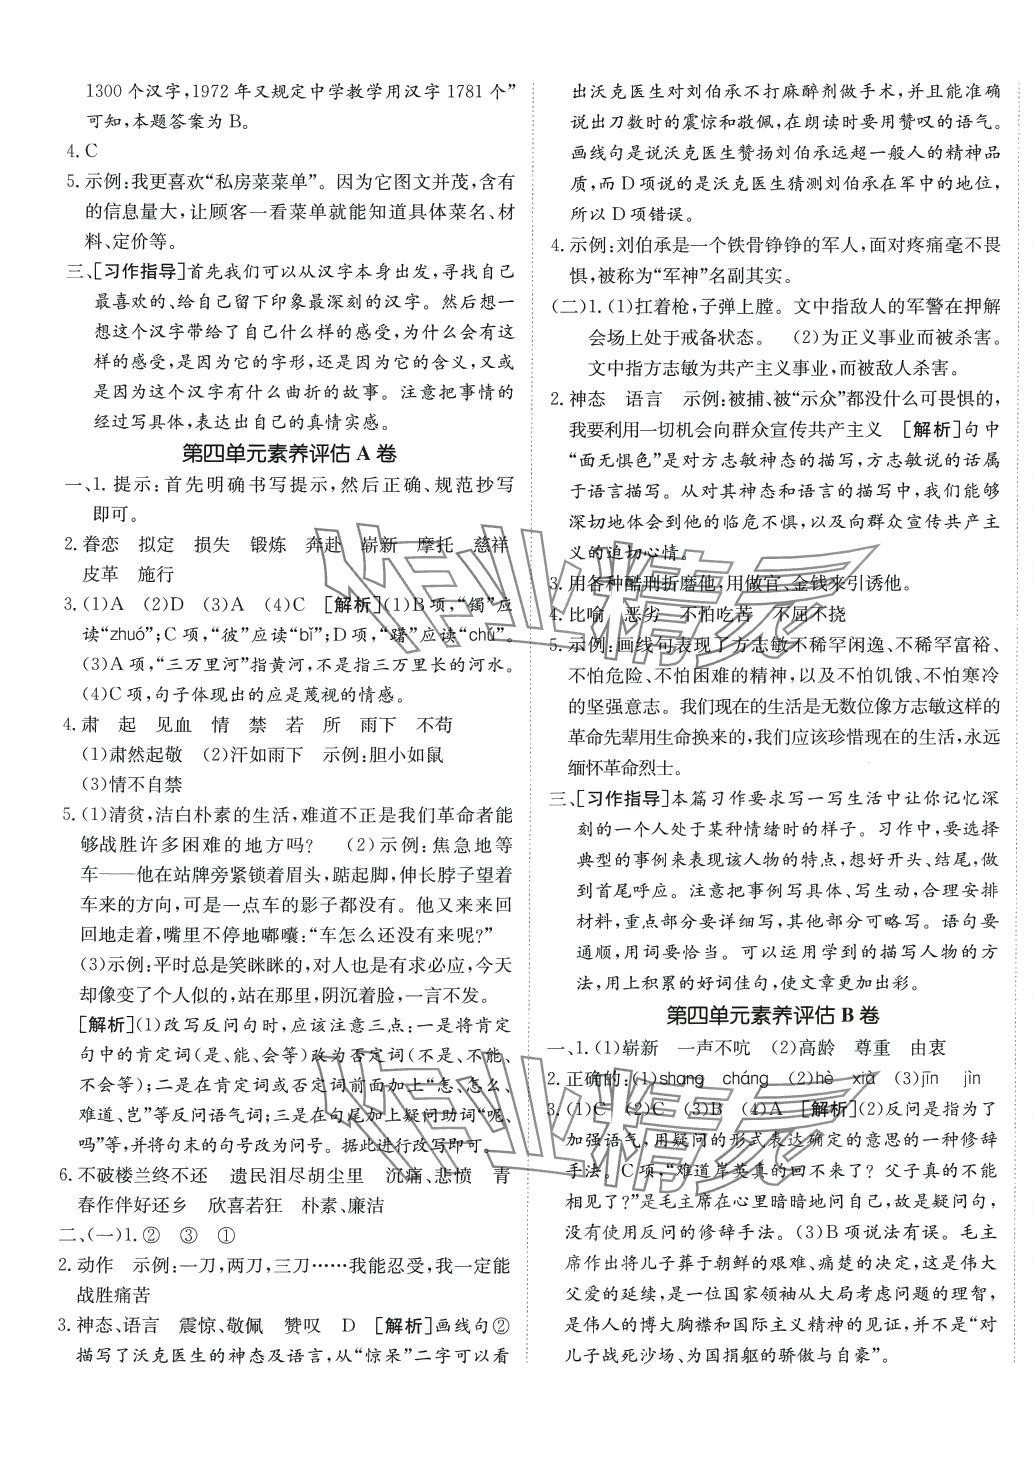 1300 个汉字,1972 年又规定中学教学用汉字 1781 个”
可知,本题答案为 B。
4. C
5. 示例:我更喜欢“私房菜菜单”。因为它图文并茂,含有
的信息量大,让顾客一看菜单就能知道具体菜名、材
料、定价等。
三、[习作指导]首先我们可以从汉字本身出发,寻找自己
最喜欢的、给自己留下印象最深刻的汉字。然后想一
想这个汉字带给了自己什么样的感受,为什么会有这
样的感受,是因为它的字形,还是因为它的含义,又或
是因为这个汉字有什么曲折的故事。注意把事情的
经过写具体,表达出自己的真情实感。
第四单元素养评估 A 卷
一、1. 提示:首先明确书写提示,然后正确、规范抄写
即可。
2. 眷恋 拟定 损失 锻炼 奔赴 崭新 摩托 慈祥
皮革 施行
3. (1)A (2)D (3)A (4)C [解析](1)B 项,“镯”应
读“zhuó”;C 项,“彼”应读“bǐ”;D 项,“躇”应读“chú”。
(3)A 项,“三万里河”指黄河,不是指三万里长的河水。
(4)C 项,句子体现出的应是蔑视的情感。
4. 肃 起 见血 情 禁 若 所 雨下 不苟
(1)肃然起敬 (2)汗如雨下 示例:胆小如鼠
(3)情不自禁
5. (1)清贫,洁白朴素的生活,难道不正是我们革命者能
够战胜许多困难的地方吗? (2)示例:焦急地等
车——他在站牌旁紧锁着眉头,踮起脚,伸长脖子望着
车来的方向,可是一点车的影子都没有。他又来来回
回地走着,嘴里不停地嘟囔:“车怎么还没有来呢?”
(3)示例:平时总是笑眯眯的,对人也是有求必应,今天
却像变了个人似的,站在那里,阴沉着脸,一言不发。
[解析](1)改写反问句时,应该注意三点:一是将肯定
句中的肯定词(是、能、会等)改为否定词(不是、不能、
不会等);二是在肯定词或否定词前面加上“怎、怎么、
难道、岂”等反问语气词;三是在句尾加上疑问助词“呢、
吗”等,并将句末的句号改为问号。据此进行改写即可。
6. 不破楼兰终不还 遗民泪尽胡尘里 沉痛、悲愤 青
春作伴好还乡 欣喜若狂 朴素、廉洁
二、(一)1. ② ③ ①
2. 动作 示例:一刀,两刀,三刀……我能忍受,我一定能
战胜痛苦
3. 神态、语言 震惊、敬佩 赞叹 D [解析]画线句②
描写了沃克医生的神态及语言,从“惊呆”二字可以看
出沃克医生对刘伯承不打麻醉剂做手术,并且能准确
说出刀数时的震惊和敬佩,在朗读时要用赞叹的语气。
画线句是说沃克医生赞扬刘伯承远超一般人的精神品
质,而 D 项说的是沃克医生猜测刘伯承在军中的地位,
所以 D 项错误。
4. 示例:刘伯承是一个铁骨铮铮的军人,面对疼痛毫不畏
惧,被称为“军神”名副其实。
(二)1. (1)扛着枪,子弹上膛。文中指敌人的军警在押解
会场上处于戒备状态。 (2)为正义事业而被杀害。
文中指方志敏为共产主义事业,而被敌人杀害。
2. 神态 语言 示例:被捕、被“示众”都没什么可畏惧的,
我要利用一切机会向群众宣传共产主义 [解析]句中
“面无惧色”是对方志敏神态的描写,方志敏说的话属
于语言描写。从对其神态和语言的描写中,我们能够
深切地体会到他的临危不惧,以及向群众宣传共产主
义的迫切心情。
3. 用各种酷刑折磨他,用做官、金钱来引诱他。
4. 比喻 恶劣 不怕吃苦 不屈不挠
5. 示例:画线句表现了方志敏不稀罕闲逸、不稀罕富裕、
不怕危险、不怕困难的精神,以及不怕饥饿、不怕寒冷
的坚强意志。我们现在的生活是无数位像方志敏这样的
革命先辈用生命换来的,我们应该珍惜现在的生活,永远
缅怀革命烈士。
三、[习作指导]本篇习作要求写一写生活中让你记忆深
刻的一个人处于某种情绪时的样子。习作中,要选择
典型的事例来表现该人物的特点,想好开头、结尾,做
到首尾呼应。注意把事例写具体、写生动,合理安排
材料,重点部分要详细写,其他部分可略写。语句要
通顺,用词要恰当。可以运用学到的描写人物的方
法,用上积累的好词佳句,使文章更加出彩。
第四单元素养评估 B 卷
一、1. (1)崭新 一声不吭 (2)高龄 尊重 由衷
2. 正确的:(1)shang cháng (2)hè xià (3)jīn jìn
3. (1)C (2)C (3)B (4)A [解析](2)反问是指为了
加强语气,用疑问的形式表达确定的意思的一种修辞
手法。C 项,“难道岸英真的回不来了?父子真的不能
相见了?”是毛主席在心里暗暗地问自己,故是疑问句,
没有使用反问的修辞手法。(3)B 项说法有误。毛主
席作出将儿子葬于朝鲜的艰难、痛楚的决定,这是伟大
父爱的延续,是一位国家领袖从大局考虑问题的理智,
是伟人的博大胸襟和国际主义精神的见证,并不是“对
儿子战死沙场、为国捐躯的骄傲与自豪”。
作业精灵
作业精灵